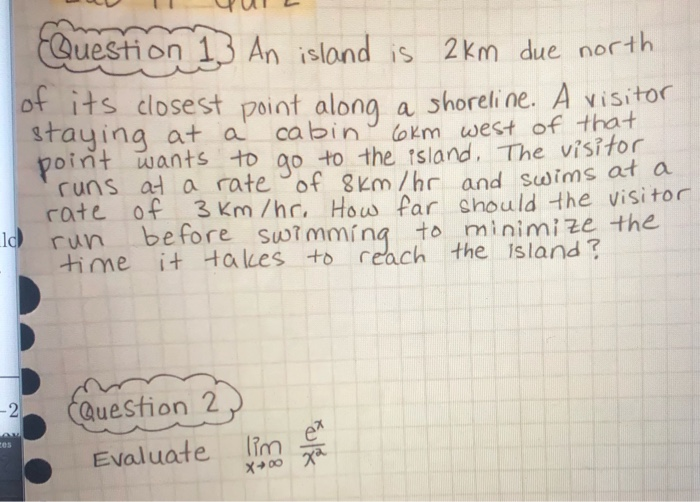 Question 1 An island is 2km due north
of its closest point along a shoreline. A visitor
staying at a cabin 6km west of that
point wants to go to the island. The visitor
runs at a rate of 8km/hr and swims at a
rate of 3km/hr. How far should the visitor
run before swimming to minimize the
time it takes to reach the island?
-2
Question 2
Evaluate lim x→∞ eˣ/x²